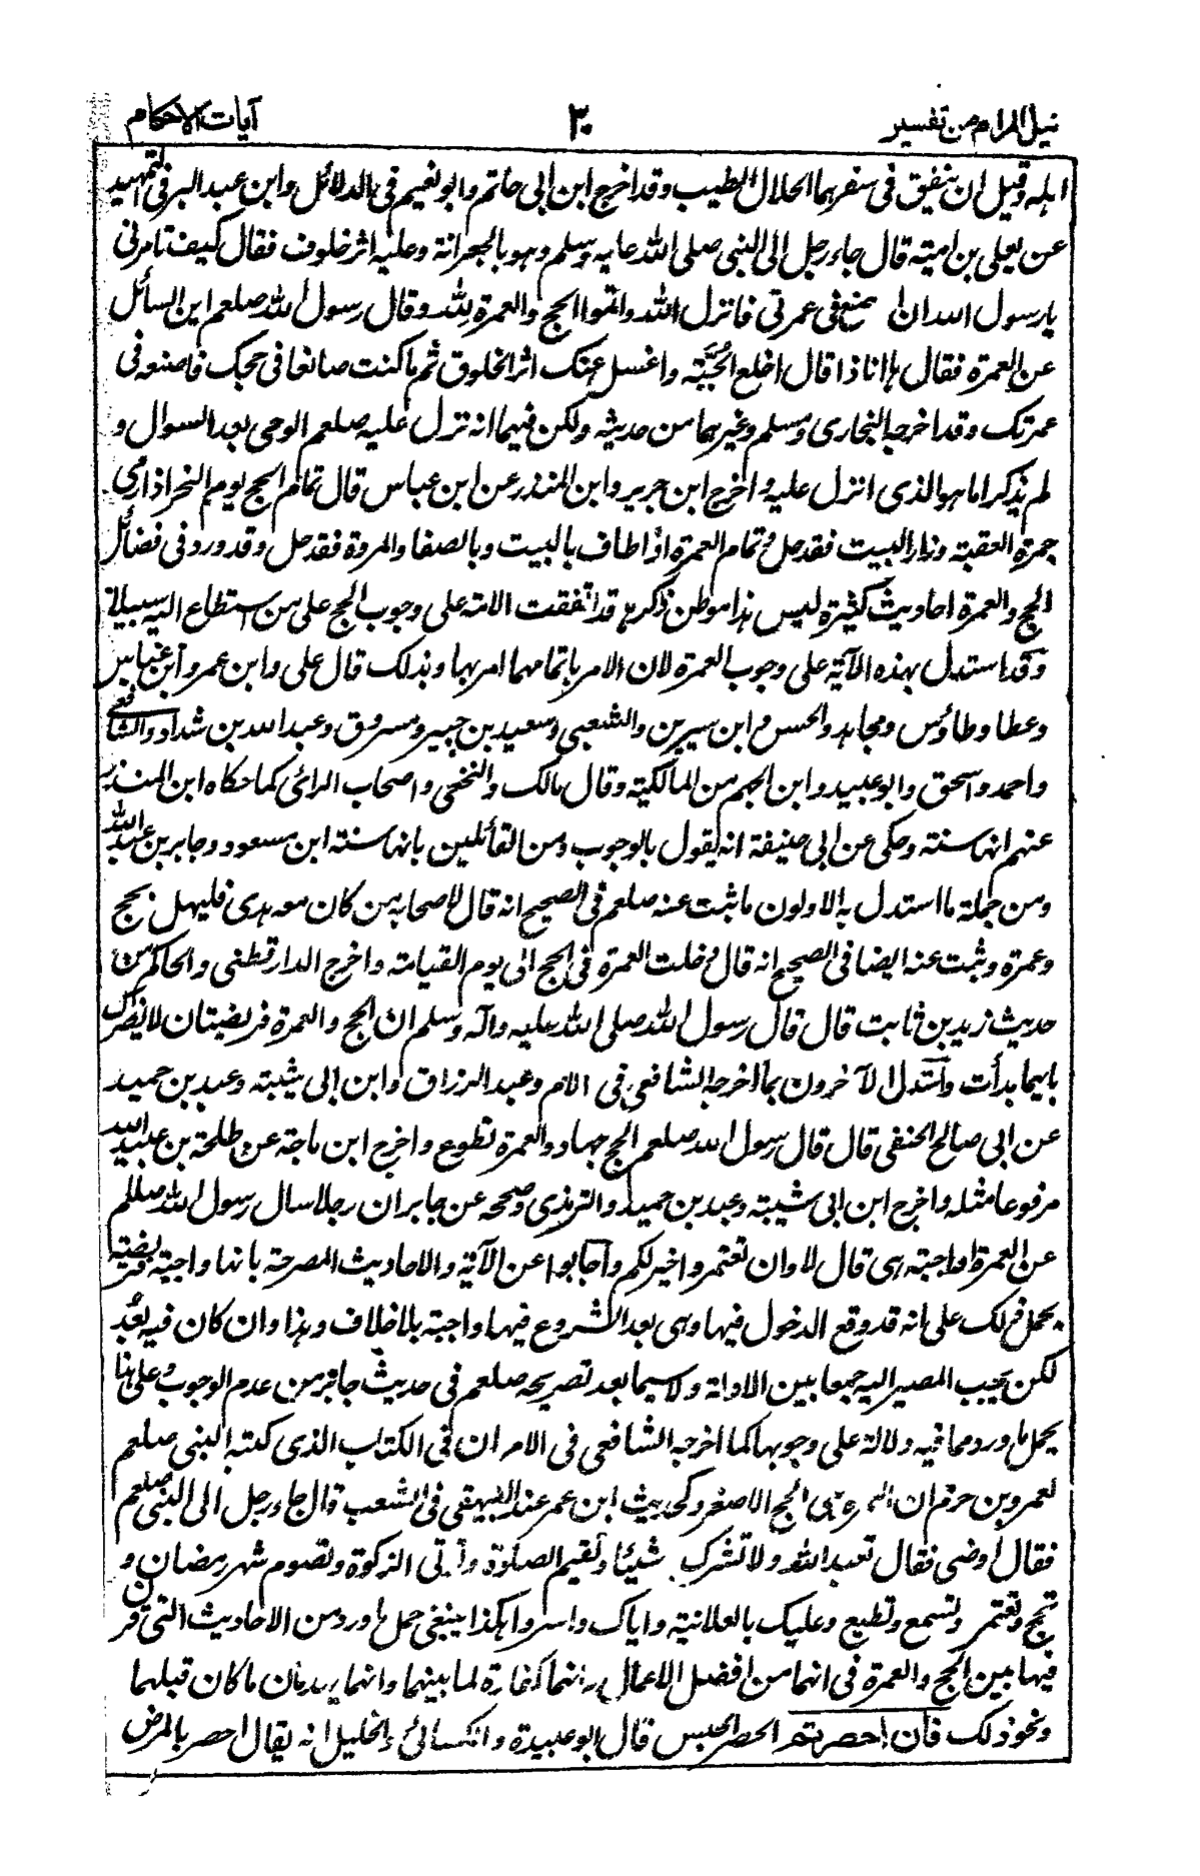 نيل المرام من تفسير ٣٠ آيات الاحكام
اهله وقيل ان ينفق فى سفرهما الحلال الطيب وقد اخرج ابن ابى حاتم وابو نعيم فى الدلائل وابن عبد البر فى التمهيد
عن يعلى بن امية قال جاء رجل الى النبى صلى الله عليه وسلم وهو بالجعرانة وعليه اثر خلوف فقال كيف تامرنى
يا رسول الله ان اصنع فى عمرتى فانزل الله واتموا الحج والعمرة لله وقال رسول الله صلعم اين السائل
عن العمرة فقال ها انا ذا قال اخلع الجبة واغسل عنك اثر الخلوق ثم ما كنت صانعا فى حجك فاصنعه فى
عمرتك وقد اخرجه البخارى ومسلم وغيرهما من حديثه ولكن فيهما انه نزل عليه صلعم الوحى بعد السوال و
لم يذكر اما هو الذى انزل عليه واخرج ابن جرير وابن المنذر عن ابن عباس قال تمام الحج يوم النحر اذا رمى
جمرة العقبة وزار البيت فقد حل وتمام العمرة اذا طاف بالبيت وبالصفا والمروة فقد حل وقد ورد فى فضائل
الحج والعمرة احاديث كثيرة ليس هذا موطن ذكرها وقد اتفقت الامة على وجوب الحج على من استطاع اليه سبيلا
وقد استدل بهذه الآية على وجوب العمرة لان الامر باتمامها امر بها وبذلك قال على وابن عمر وابن عباس
وعطا وطاؤس ومجاهد والحسن وابن سيرين والشعبى وسعيد بن جبير ومسروق وعبد الله بن شداد والشافعى
واحمد واسحق وابو عبيد وابن الجهم من المالكية وقال مالك والنخعى واصحاب الرائى كما حكاه ابن المنذر
عنهم انها سنة وحكى عن ابى حنيفة انه يقول بالوجوب ومن القائلين بانها سنة ابن مسعود وجابر بن عبد الله
ومن جملة ما استدل به الاولون ما ثبت عنه صلعم فى الصحيح انه قال لاصحابه من كان معه هدى فليهل بحج
وعمرة وثبت عنه ايضا فى الصحيح انه قال دخلت العمرة فى الحج الى يوم القيامة واخرج الدارقطنى والحاكم من
حديث زيد بن ثابت قال قال رسول الله صلى الله عليه وآله وسلم ان الحج والعمرة فريضتان لا يضرك
بايهما بدأت واستدل الآخرون بما اخرجه الشافعى فى الام وعبد الرزاق وابن ابى شيبة وعبد بن حميد
عن ابى صالح الحنفى قال قال رسول الله صلعم الحج جهاد والعمرة تطوع واخرج ابن ماجة عن طلحة بن عبيد الله
مرفوعا مثله واخرج ابن ابى شيبة وعبد بن حميد والترمذى وصححه عن جابر ان رجلا سال رسول الله صللم
عن العمرة اواجبة هى قال لا وان تعتمروا خير لكم واجابوا عن الآية والاحاديث المصرحة بانها واجبة فريضة
بحمل ذلك على انه قد وقع الدخول فيها وهى بعد الشروع فيها واجبة بلا خلاف وهذا وان كان فيه بعد
لكن يجب المصير اليه جمعا بين الادلة ولا سيما بعد تصريحه صلعم فى حديث جابر من عدم الوجوب وعلى هذا
يحمل ما ورد مما فيه دلالة على وجوبها كما اخرجه الشافعى فى الام ان فى الكتاب الذى كتبه النبى صلعم
لعمرو بن حزم ان العمرة هى الحج الاصغر وكحديث ابن عمر عند البيهقى فى الشعب قال جاء رجل الى النبى صلعم
فقال اوصنى فقال تعبد الله ولا تشرك به شيئا وتقيم الصلوة وتأتى الزكوة وتصوم شهر رمضان و
تحج وتعتمر وتسمع وتطيع وعليك بالعلانية واياك والسر وهكذا ينبغى حمل ما ورد من الاحاديث التى قرن
فيها بين الحج والعمرة فى انهما من افضل الاعمال وانهما كفارة لما بينهما وانهما يهدمان ما كان قبلهما
ونحو ذلك فان احصرتم الحصر الحبس قال ابو عبيدة والكسائى والخليل انه يقال احصر بالمرض